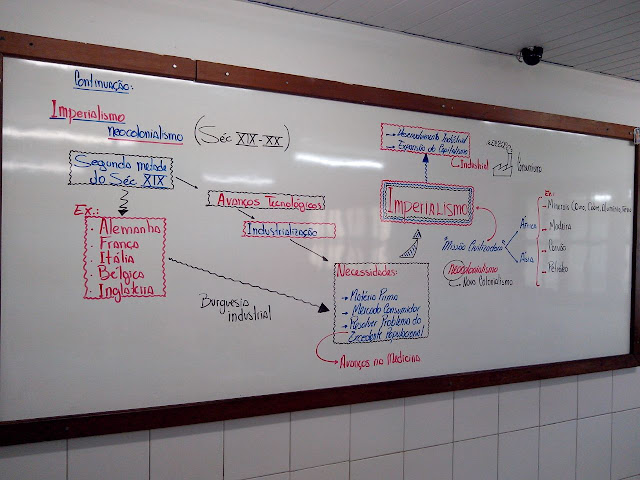 Continuação:
Imperialismo
neocolonialismo (Séc XIX-XX)
Segunda metade
do Séc XIX
Avanços Tecnológicos
Industrialização
Ex.:
. Alemanha
. França
. Itália
. Bélgica
. Inglaterra
Burguesia
industrial
Necessidades:
→ Matéria Prima
→ Mercado Consumidor
→ Resolver Problema do
Excedente Populacional
→ Avanços na Medicina
→ Desenvolvimento Industrial
→ Expansão do Capitalismo
Industrial
Consumismo
IMPERIALISMO
"Missão Civilizadora"
neocolonialismo
Novo Colonialismo
África
Ásia
Ex.:
Minerais (Ouro, Cobre, Alumínio, Ferro
Madeira
Carvão
Petróleo